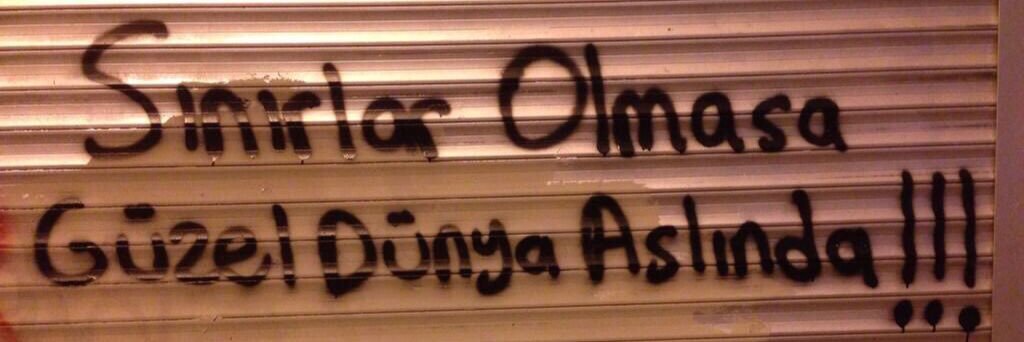 Sınırlar Olmasa
Güzel Dünya Aslında !!!